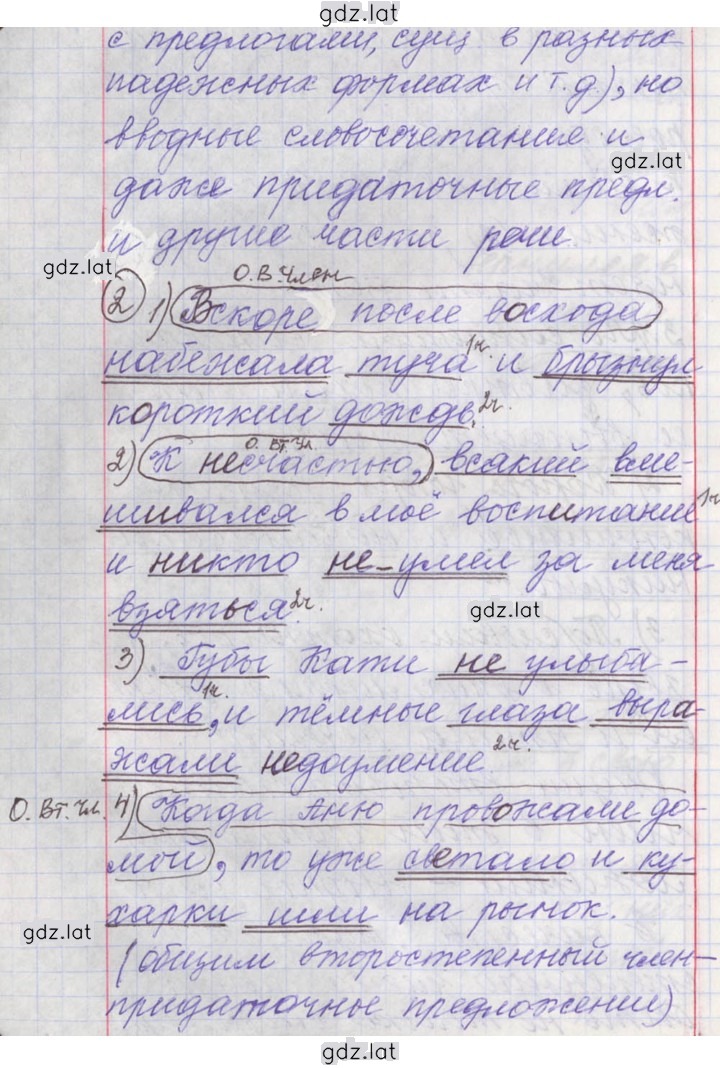 gdz.lat
с предлогами, сущ. в разных
падежных формах и т.д), но
вводные словосочетание и
gdz.lat
даже придаточные предл.
и другие части речи.
gdz.lat
О.В.Член
2 1) Вскоре после восхода
набежала туча 1ч. и брызнул
короткий дождь. 2ч.
О. Вт. Чл.
2) К несчастью, всякий вме-
шивался в моё воспитание 1ч
и никто не умел за меня
взяться. 2ч.
gdz.lat
3) Губы Кати не улыба-
лись, 1ч. и тёмные глаза выра-
жали недоумение 2ч.
О. Вт. Чл. 4) Когда Аню провожали до-
мой, то уже светало и ку-
харки шли на рынок.
gdz.lat
(общим второстепенный член-
придаточные предложение)
gdz.lat